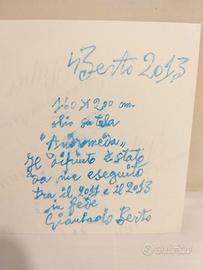 G Berto 2013
160 X 200 cm.
olio su tela
"Andromeda"
Il dipinto è stato
da me eseguito
tra il 2011 e il 2013
in fede
Gianpaolo Berto
subito